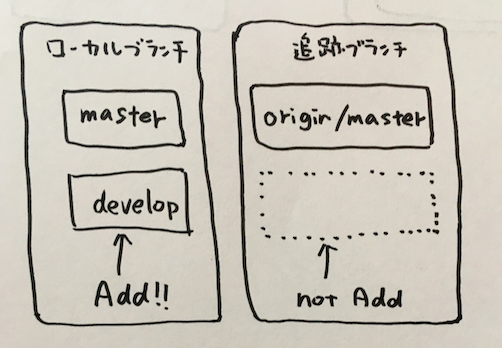 ローカルブランチ
master
develop
Add!!
追跡ブランチ
origin/master
not Add